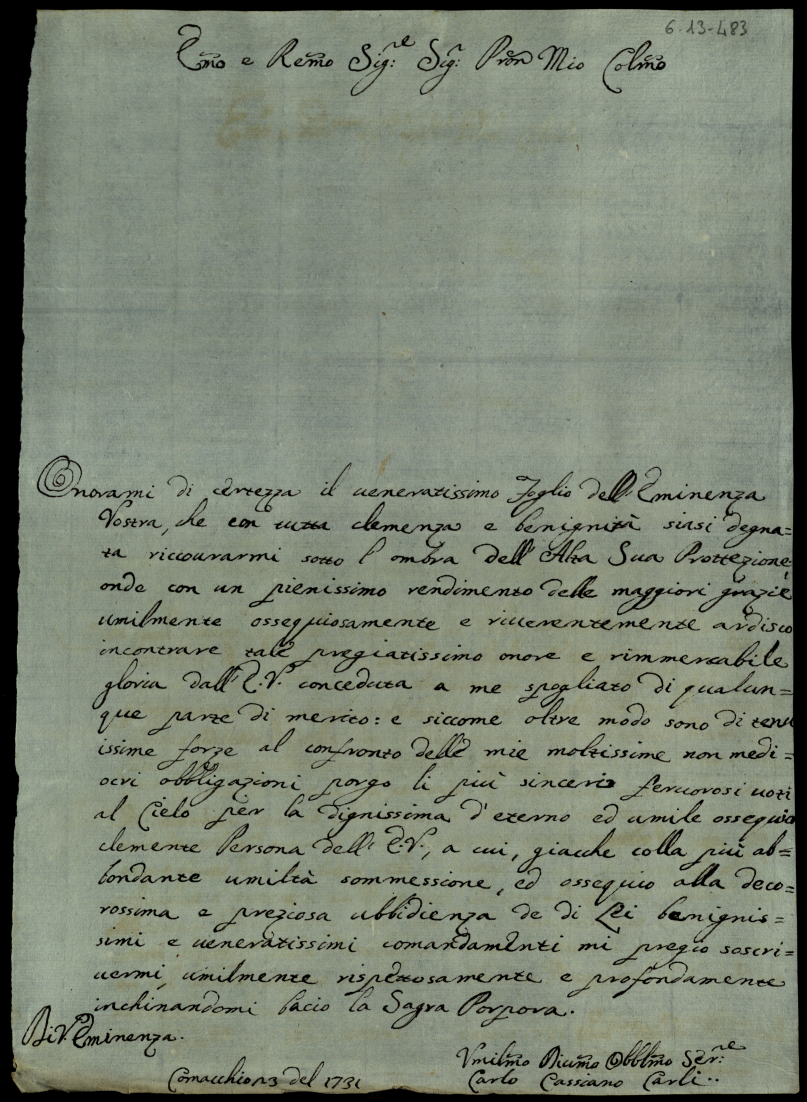 6-13-483
Emo e Remo Sig:re Sig:r Pron Mio Colmo
Onorami di certezza il ueneratissimo Foglio dell'Eminenza
Vostra, che con tutta clemenza e benignità siasi degna=
ta riccourarmi sotto l'ombra dell'Alta Sua Prottezione,
onde con un pienissimo rendimento delle maggiori grazie
umilmente ossequiosamente e riuerentemente ardisco
incontrare tale pregiatissimo onore e rimmercabile
gloria dall'E.V. conceduta a me spogliato di qualun=
que parte di merito: e siccome oltre modo sono di tenu
issime forze al confronto delle mie moltissime non medi=
ocri obbligazioni porgo li più sinceri feruorosi uoti
al Cielo per la dignissima d'eterno ed umile ossequio
clemente Persona dell'E.V., a cui, giacche colla più ab=
bondante umiltà sommessione, ed ossequio alla deco=
rossima e preziosa ubbidienza de di Lei benignis=
simi e ueneratissimi comandamenti mi pregio soscri=
uermi, umilmente rispettosamente e profondamente
inchinandomi bacio la Sagra Porpora.
Di V. Eminenza.
Vmilmo Diumo Obblmo Ser:re
Comacchio 13 del 1731
Carlo Cassiano Carli..